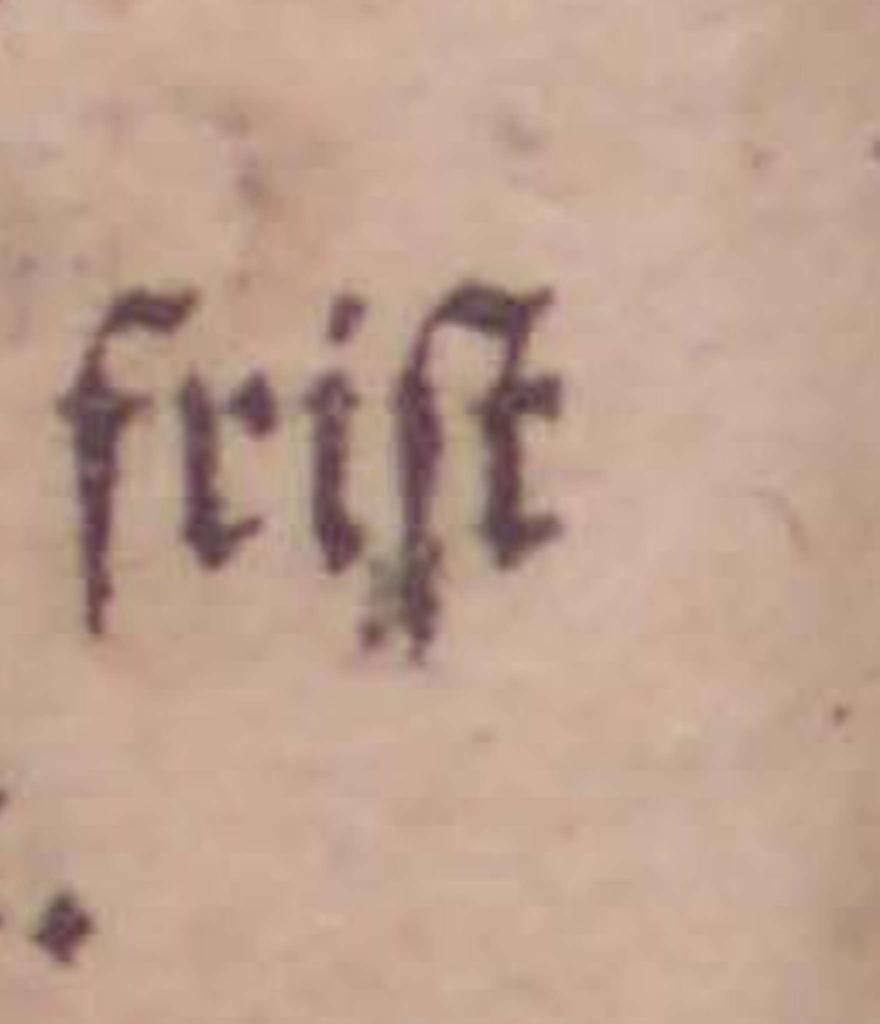 friſt
.